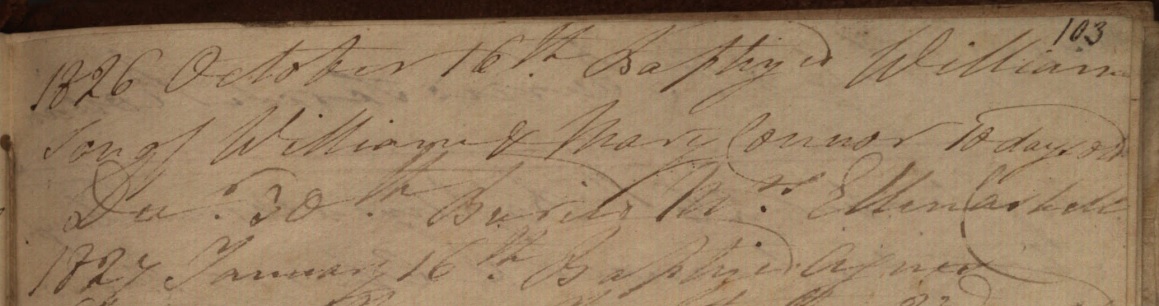 103
1826 October 16th Baptized William
Son of William & Mary Connor 10 days old
Decr. 30th Buried Mrs Ellen
1827 January 16th Baptized Agnes